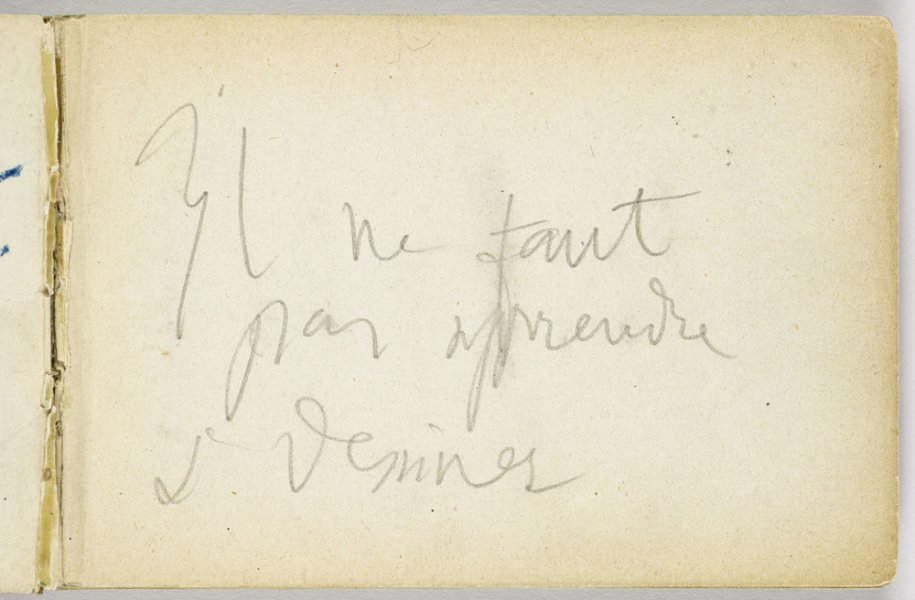 Il ne faut
pas apprendre
à dessiner